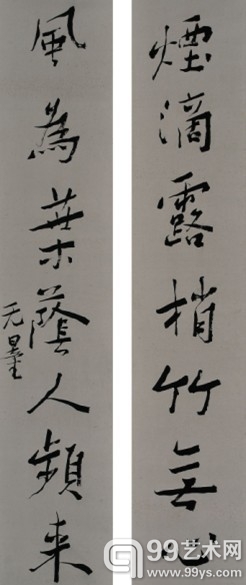 煙滴露梢竹無心
風為葉蔭人頻来
无墨
99艺术网
www.99ys.com